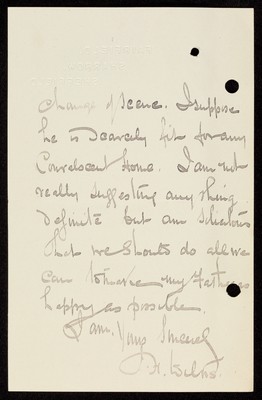 change of scene. I suppose
he is scarcely fit for any
Convalescent Home. I am not
really suggesting any thing
definite but am solicitous
that we should do all we
can to make my Father as
happy as possible.
I am, Yours Sincerely